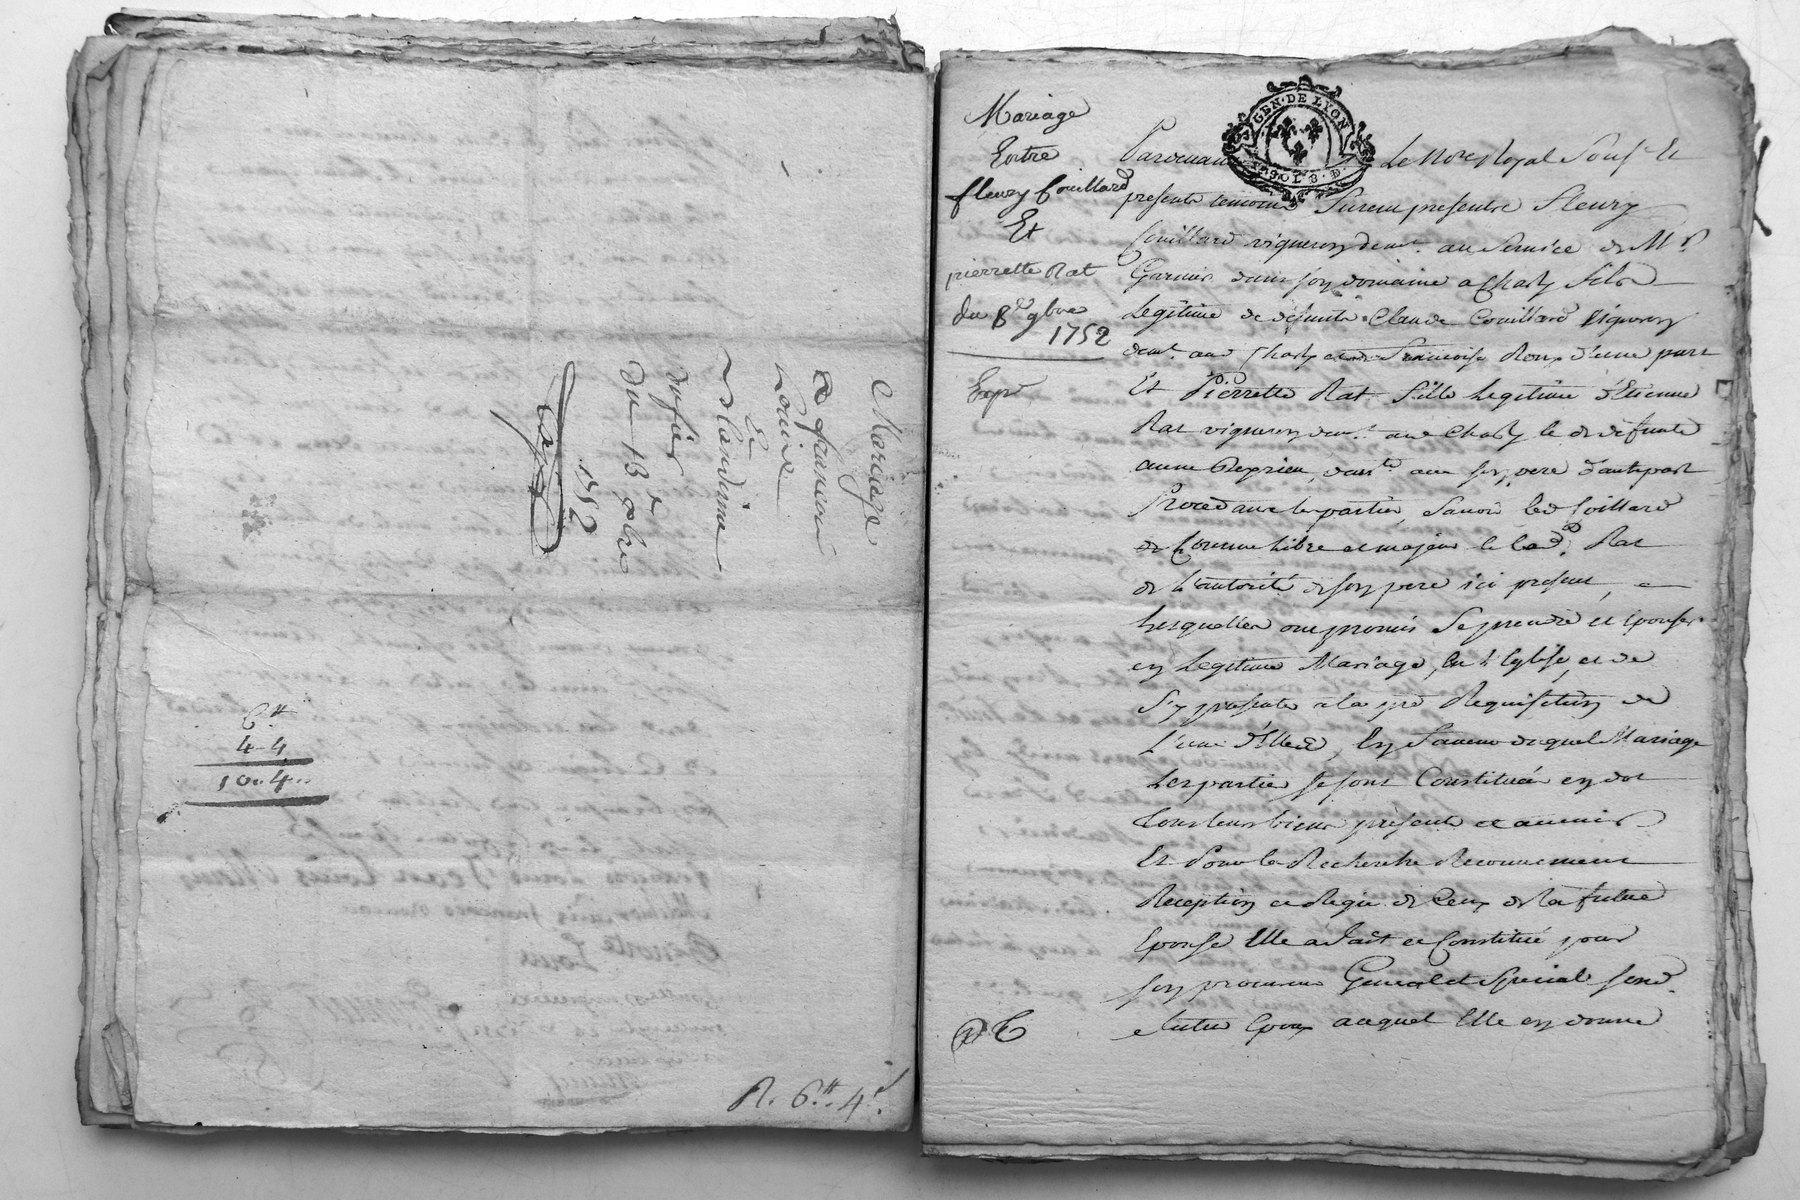 Mariage
de francois
Louis
Et
Blandine
dufier
Du 13e xbre
1752
6tt
4-4
10..4..
R. 6tt. 4s.
Mariage
Entre
fleury Couillard
Et
pierrette Rat
du 8e 9bre
1752
Exp
GEN. DE LYON
SOLS. D.
Pardevant Le Nore Royal Sousé Et
presents temoins Furent presents Fleury
Couillard vigneron demt. au Service de Mr.
Garnier dans son domaine a Charly fils
Legitime de defunts Claude Couillard Vigneron
demt. aud Charly et Francoise Roux d'une part
Et Pierrette Rat fille Legitime d'Etienne
Rat vigneron demt. aud Charly & de defunte
anne demte avec son pere d'autrepart
Procedant les parties, Savoir led Coillard
de Comme Libre et majeur & lad. Rat
de L'autorité de son pere ici present,
Lesquelles ont promis Se prendre et Epouser
en Legitime Mariage, En L'Eglise, et de
S'y presenter a la pre Requisition de
L'une d'Elles, En faveur duquel Mariage
Les parties se sont Constituées en dot
tous leurs biens présents et avenir
Et Pour la Recherche Recouvrement
Reception et Regie de Ceux de La future
Epouse Elle a fait et Constitué pour
son procureur General et Special sond.
futur Epoux auquel Elle en donne